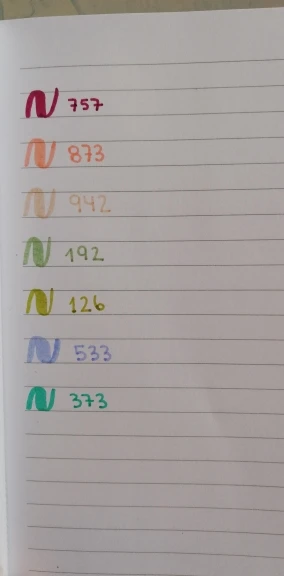 N 757
N 873
N 942
N 192
N 126
N 533
N 373